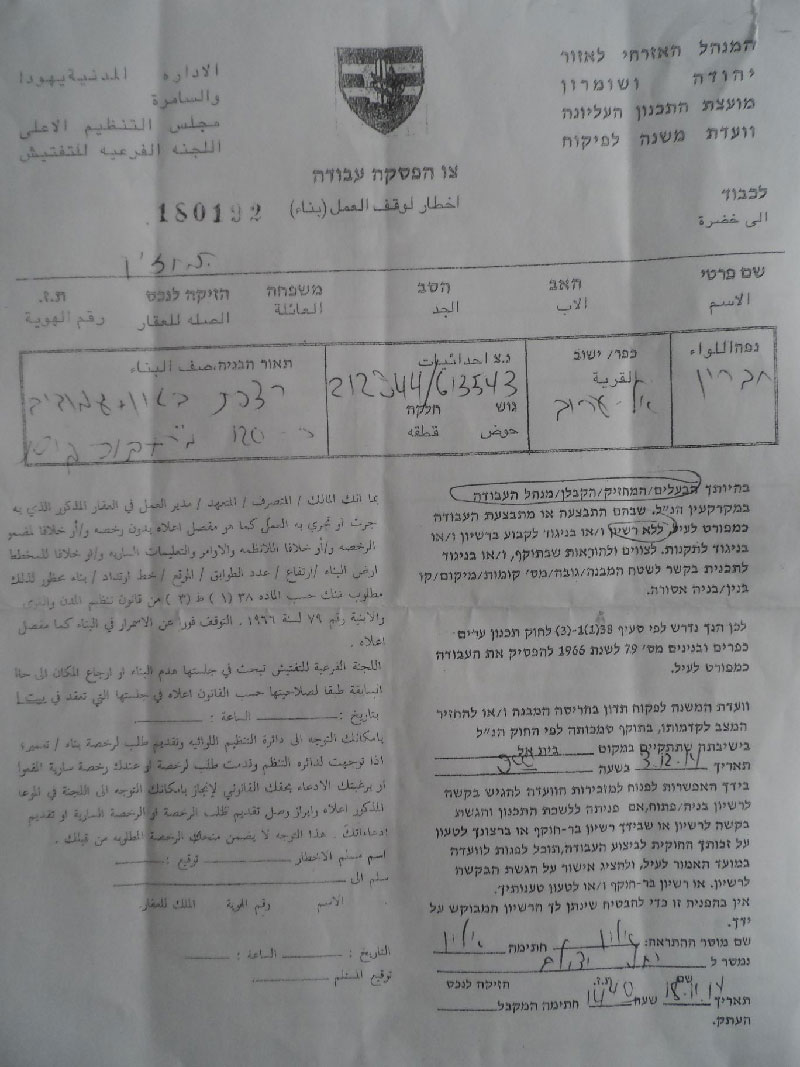 המנהל האזרחי לאזור
יהודה ושומרון
מועצת התכנון העליונה
וועדת משנה לפיקוח
الاداره المدنية يهودا
والسامرة
مجلس التنظيم الاعلى
اللجنه الفرعيه للتفتيش
צו הפסקה עבודה
اخطار لوقف العمل (بناء)
180192
לכבוד
الى حضرة
שם פרטי האב הסב משפחה הזיקה לנכס ת.ז.
الاسم الاب الجد العائلة الصله للعقار رقم الهوية
נפה اللواء
חברון
כפר/ ישוב
القرية
אל-ערוב
נ.צ احداثيات
212344/613543
גוש חלקה
حوض قطعه
תאור הבניה وصف البناء
רצפת בטון + עמודים
כ- 120 מ"ר
בהיותך הבעלים/המחזיק/הקבלן/מנהל העבודה
במקרקעין הנ"ל, שבהם התבצעה או מתבצעת העבודה
כמפורט לעיל, ללא רשיון ו/או בניגוד לקבוע ברשיון ו/או
בניגוד לתקנות. לצווים ולהוראות שבתוקף, ו/או בניגוד
לתכנית בקשר לשטח המבנה/גובה/מס' קומות/מיקום/קו
בנין/בניה אסורה.
לכן הנך נדרש לפי סעיף 38(1)-(3) לחוק תכנון ערים
כפרים ובנינים מס' 79 לשנת 1966 להפסיק את העבודה
כמפורט לעיל.
וועדת המשנה לפקוח תדון בהריסת המבנה ו/או להחזיר
המצב לקדמותו, בתוקף סמכותה לפי החוק הנ"ל
בישיבתה שתתקיים במקום בית אל
תאריך 3.12.14 בשעה 9:00
בידך האפשרות לפנות למזכירות הוועדה להגיש בקשה
לרשיון בניה/פתוח, אם פניתה ללשכת התכנון והגשת
בקשה לרשיון או שבידך רשיון בר-תוקף או ברצונך לטעון
על זכותך החוקית לביצוע העבודה, תוכל לפנות לוועדה
במועד האמור לעיל, ולהציג אישור על הגשת הבקשה
לרשיון. או רשיון בר-תוקף ו/או לטעון טענותיך.
אין בהפניה זו כדי להבטיח שינתן לך הרשיון המבוקש על
ידך.
שם מוסר ההתראה: חתימה
נמסר ל
שם ת.ז. הזיקה לנכס
תאריך 18.11.14 שעה חתימה המקבל
העתק.
بما انك المالك / المتصرف / المتعهد / مدير العمل في العقار المذكور الذي به
جرت او تجري به العمل كما هو مفصل اعلاه بدون رخصه و/أو خلافا لمضمو
الرخصه و/أو خلافا للانظمه والاوامر والتعليمات الساريه و/او خلافا للمخطط
ارض البناء /ارتفاع / عدد الطوابق / الموقع / خط ارتداد / بناء محظور لذلك
مطلوب منك حسب الماده ٣٨ (١) ط (٣) من قانون تنظيم المدن والقرى
والابنية رقم ٧٩ لسنة ١٩٦٦ . التوقف فورا عن الاستمرار في البناء كما مفصل
اعلاه .
اللجنة الفرعية للتفتيش تبحث في جلستها هدم البناء او ارجاع المكان الى حالة
السابقة طبقا لصلاحيتها حسب القانون اعلاه في جلستها التي تعقد في
بتاريخ : الساعة :
بامكانك التوجه الى دائرة التنظيم اللوائيه وتقديم طلب لرخصة بناء / تعمير،
اذا توجهت لدائره التنظم وقدمت طلب لرخصة او عندك رخصة سارية المفعول
او برغبتك الادعاء بحقك القانوني لإنجاز بامكانك التوجه الى اللجنة في الموعد
المذكور اعلاه وابراز وصل تقديم طلب الرخصة او الرخصة السارية او تقديم
ادعاءاتك . هذا التوجه لا يضمن منحك الرخصة المطلوبه من قبلك .
اسم مسلم الاخطار توقيع :
سلم الى
الاسم رقم الهوية الملك للعقار.
التاريخ : الساعة :
توقيع المستلم